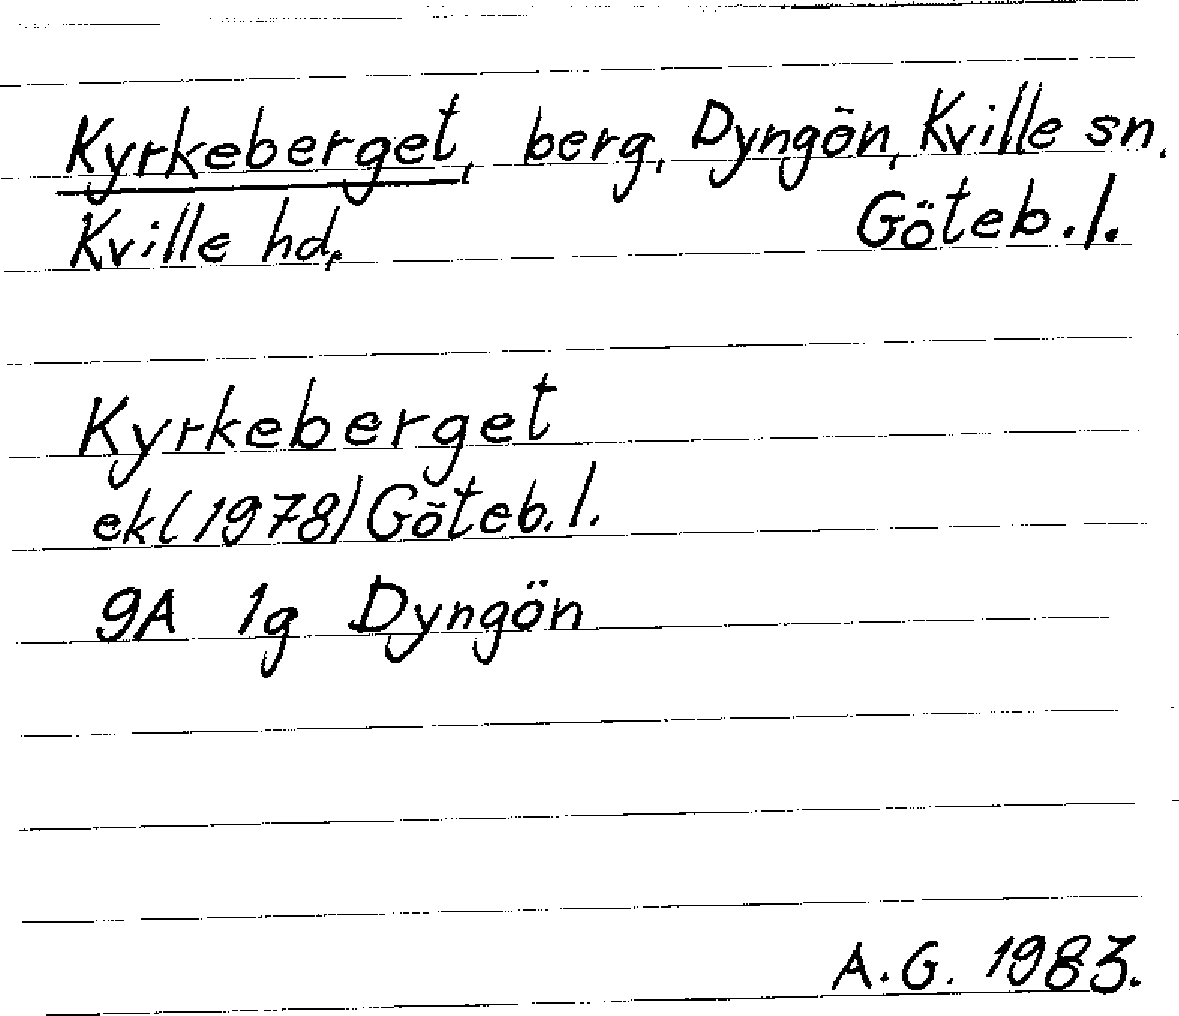 Kyrkeberget, berg, Dyngön, Kville sn.
Kville hd, Göteb.l.
Kyrkeberget
ek(1978) Göteb.l.
9A 1g Dyngön
A.G. 1983.